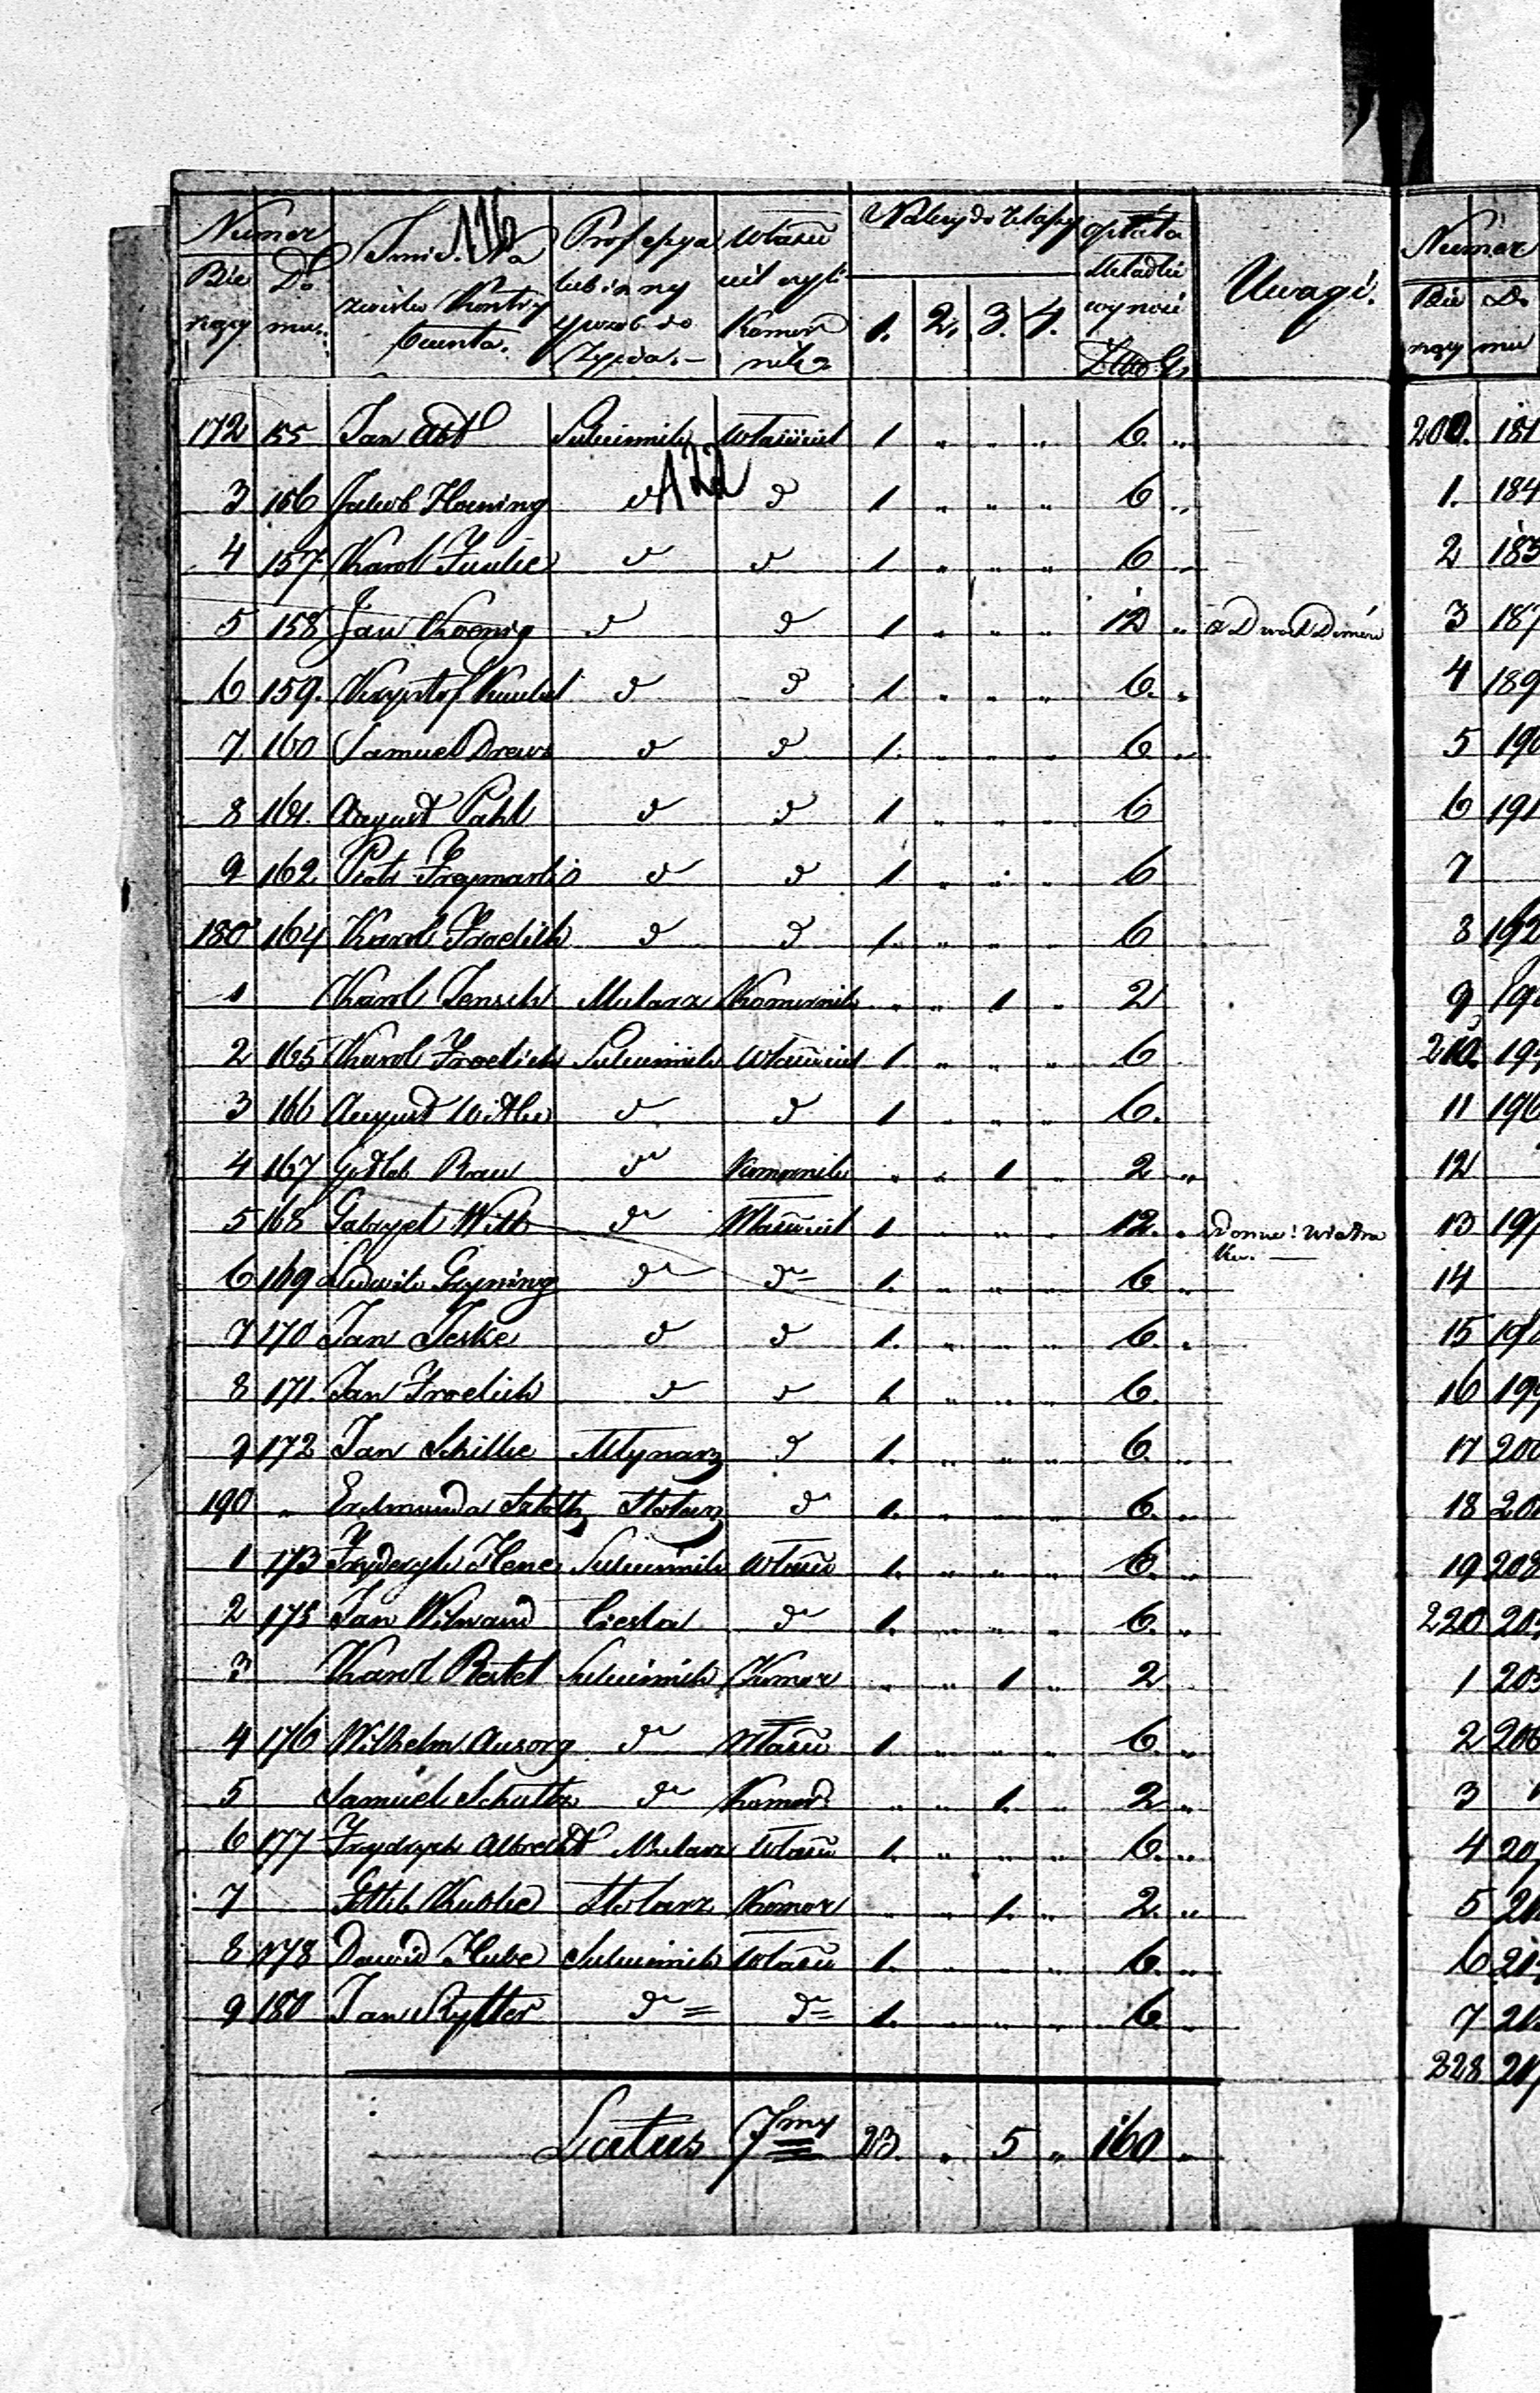 116
Numer
Bie żący
Do mu.
Imie. Na zwisko Kontry buenta.
Professya lub inny sposób do Życia. –
Właści ciel czyli Komor nik
Należy do klassy
1. 2. 3. 4.
opłata składki wynosi
Złto G
Uwagi.
172 155 Jan Abt Sukiennik Właściciel 1 " " " 6. "
122
3 156 Jakob Hoening d d 1 " " " 6 "
4 157 Karol d d 1 " " " 6 "
5 158 Jan Koenig d d 1 " " " 12 " z Dwóch Domów
6 159. Krzysztof d d 1 " " " 6. "
7 160 Samuel Drews d d 1. " " " 6. "
8 161. August Pahl d d 1 " " " 6
9 162 Piotr Freymark d d 1 " " " 6
180 164 Karol Froelich d d 1. " " " 6
1 Karol Jensch Mularz Komornik " " 1 " 2
2 165 Karol Froelich Sukiennik Właściciel 1 " " " 6
3 166 August Witke d d 1 " " " 6.
4 167 Gotlob Rau dº Komornik " " 1 " 2 "
5 168 Gabryel Witt dº Właściciel 1 " " " 12. " Domu i Wiatra ka. —
6 169 Ludwik Gryning dº dº 1. " " " 6 "
7 170 Jan Jeske d d 1. " " " 6. "
8 171. Jan Froelich d d 1. " " " 6.
9 172 Jan Schilke Młynarz d 1. " " " 6. "
190 " Erdmunda Stolarz d 1. " " " 6. "
1 173 Fryderyk Hene Sukiennik Właści 1. " " " 6. "
2 175 Jan Wilnand Cieśla dº 1. " " " 6. "
3 Karol Bertel Sukiennik Komor " " 1 " 2
4 176 Wilhelm Ansorg dº Właści 1. " " " 6. "
5 Samuel Schultz dº Komor " " 1. " 2 "
6 177 Frydryk Albrecht Mularz Właści 1. " " " 6. "
7 Gottlib Kuske Stolarz Komor " " 1. " 2. "
8 178 Dawid Hube Sukiennik Właści 1. " " " 6. "
9 180 Jan Rytter dº = dº = 1. " " " 6 "
Latus 7my 23. " 5 " 160 "
Numer
Bie żący
Do mu
200. 181
1. 184
2 185
3 187
4 189
5 190
6 191
7
8 192
9
210.
11 196
12
13 197
14
15
16 199
17 200
18
19
220
1
2 206
3
4
5
6
7
228